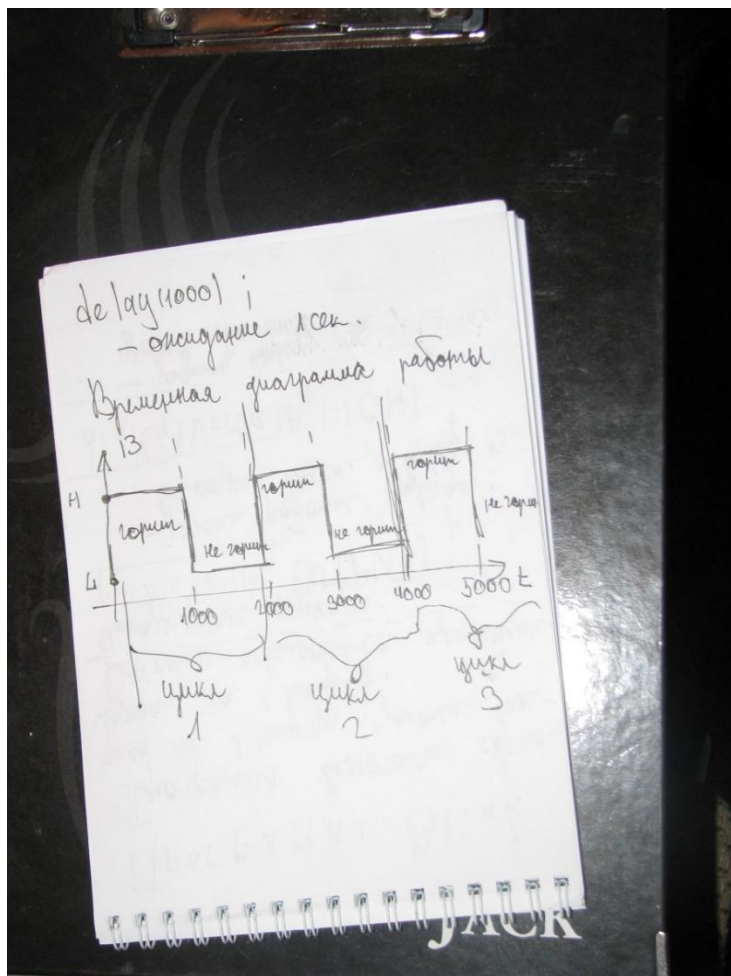 delay(1000);
- ожидание 1сек
Временная диаграмма работы
13
H
горит
не горит
горит
не горит
горит
не горит
L
1000 2000 3000 4000 5000 t
цикл цикл цикл
1 2 3
JACK